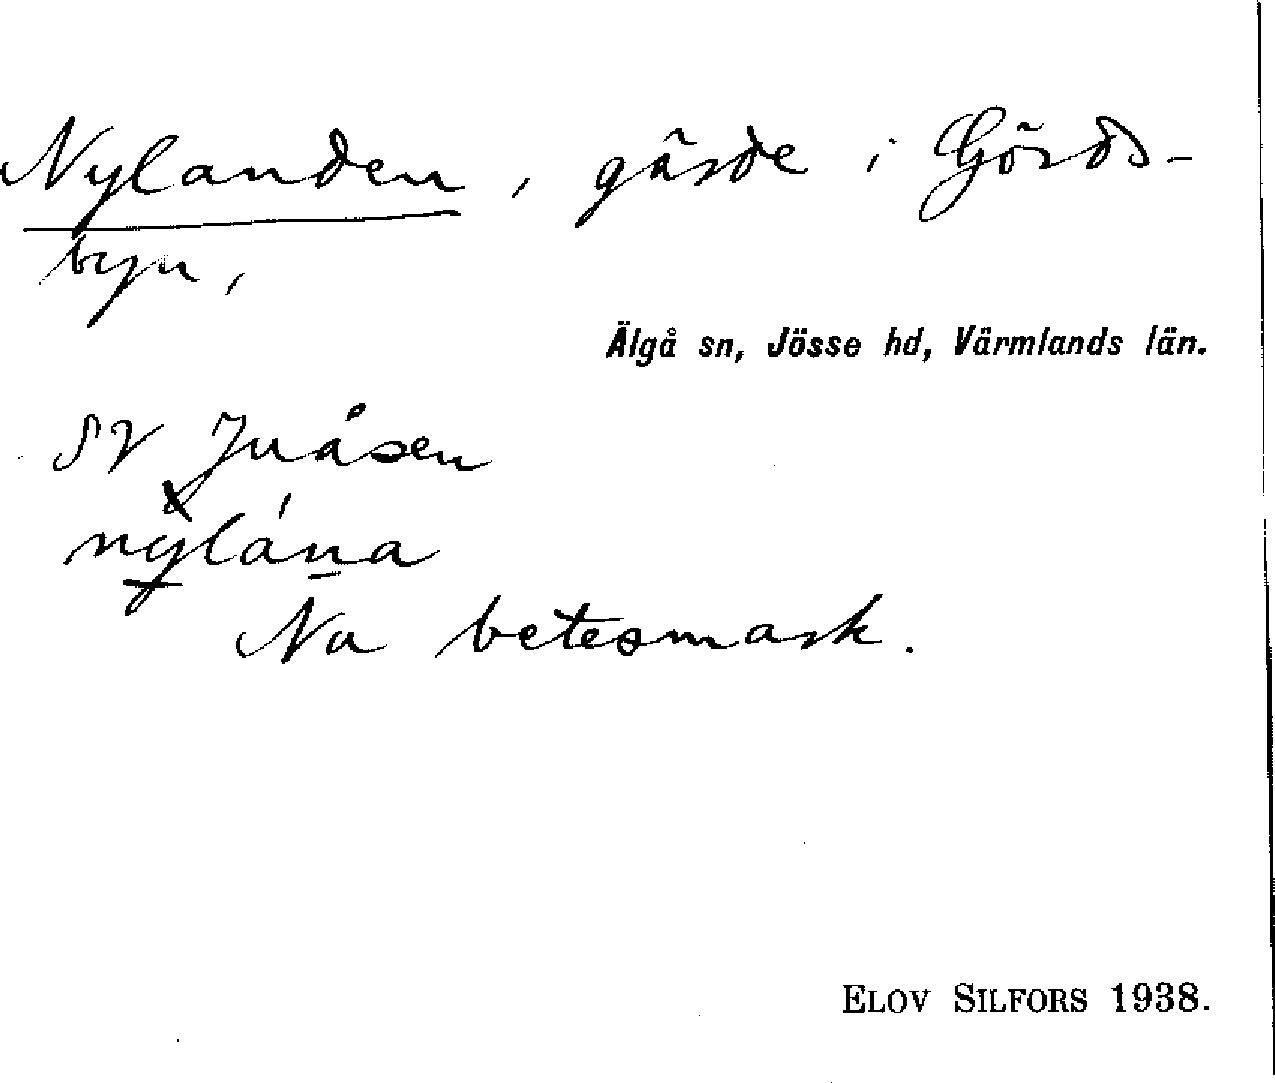 Nylanden, gärde i Görds-
byn,
Älgå sn, Jösse hd, Värmlands län.
SV Juåsen
nỳlána
Na betesmark.
ELOV SILFORS 1938.